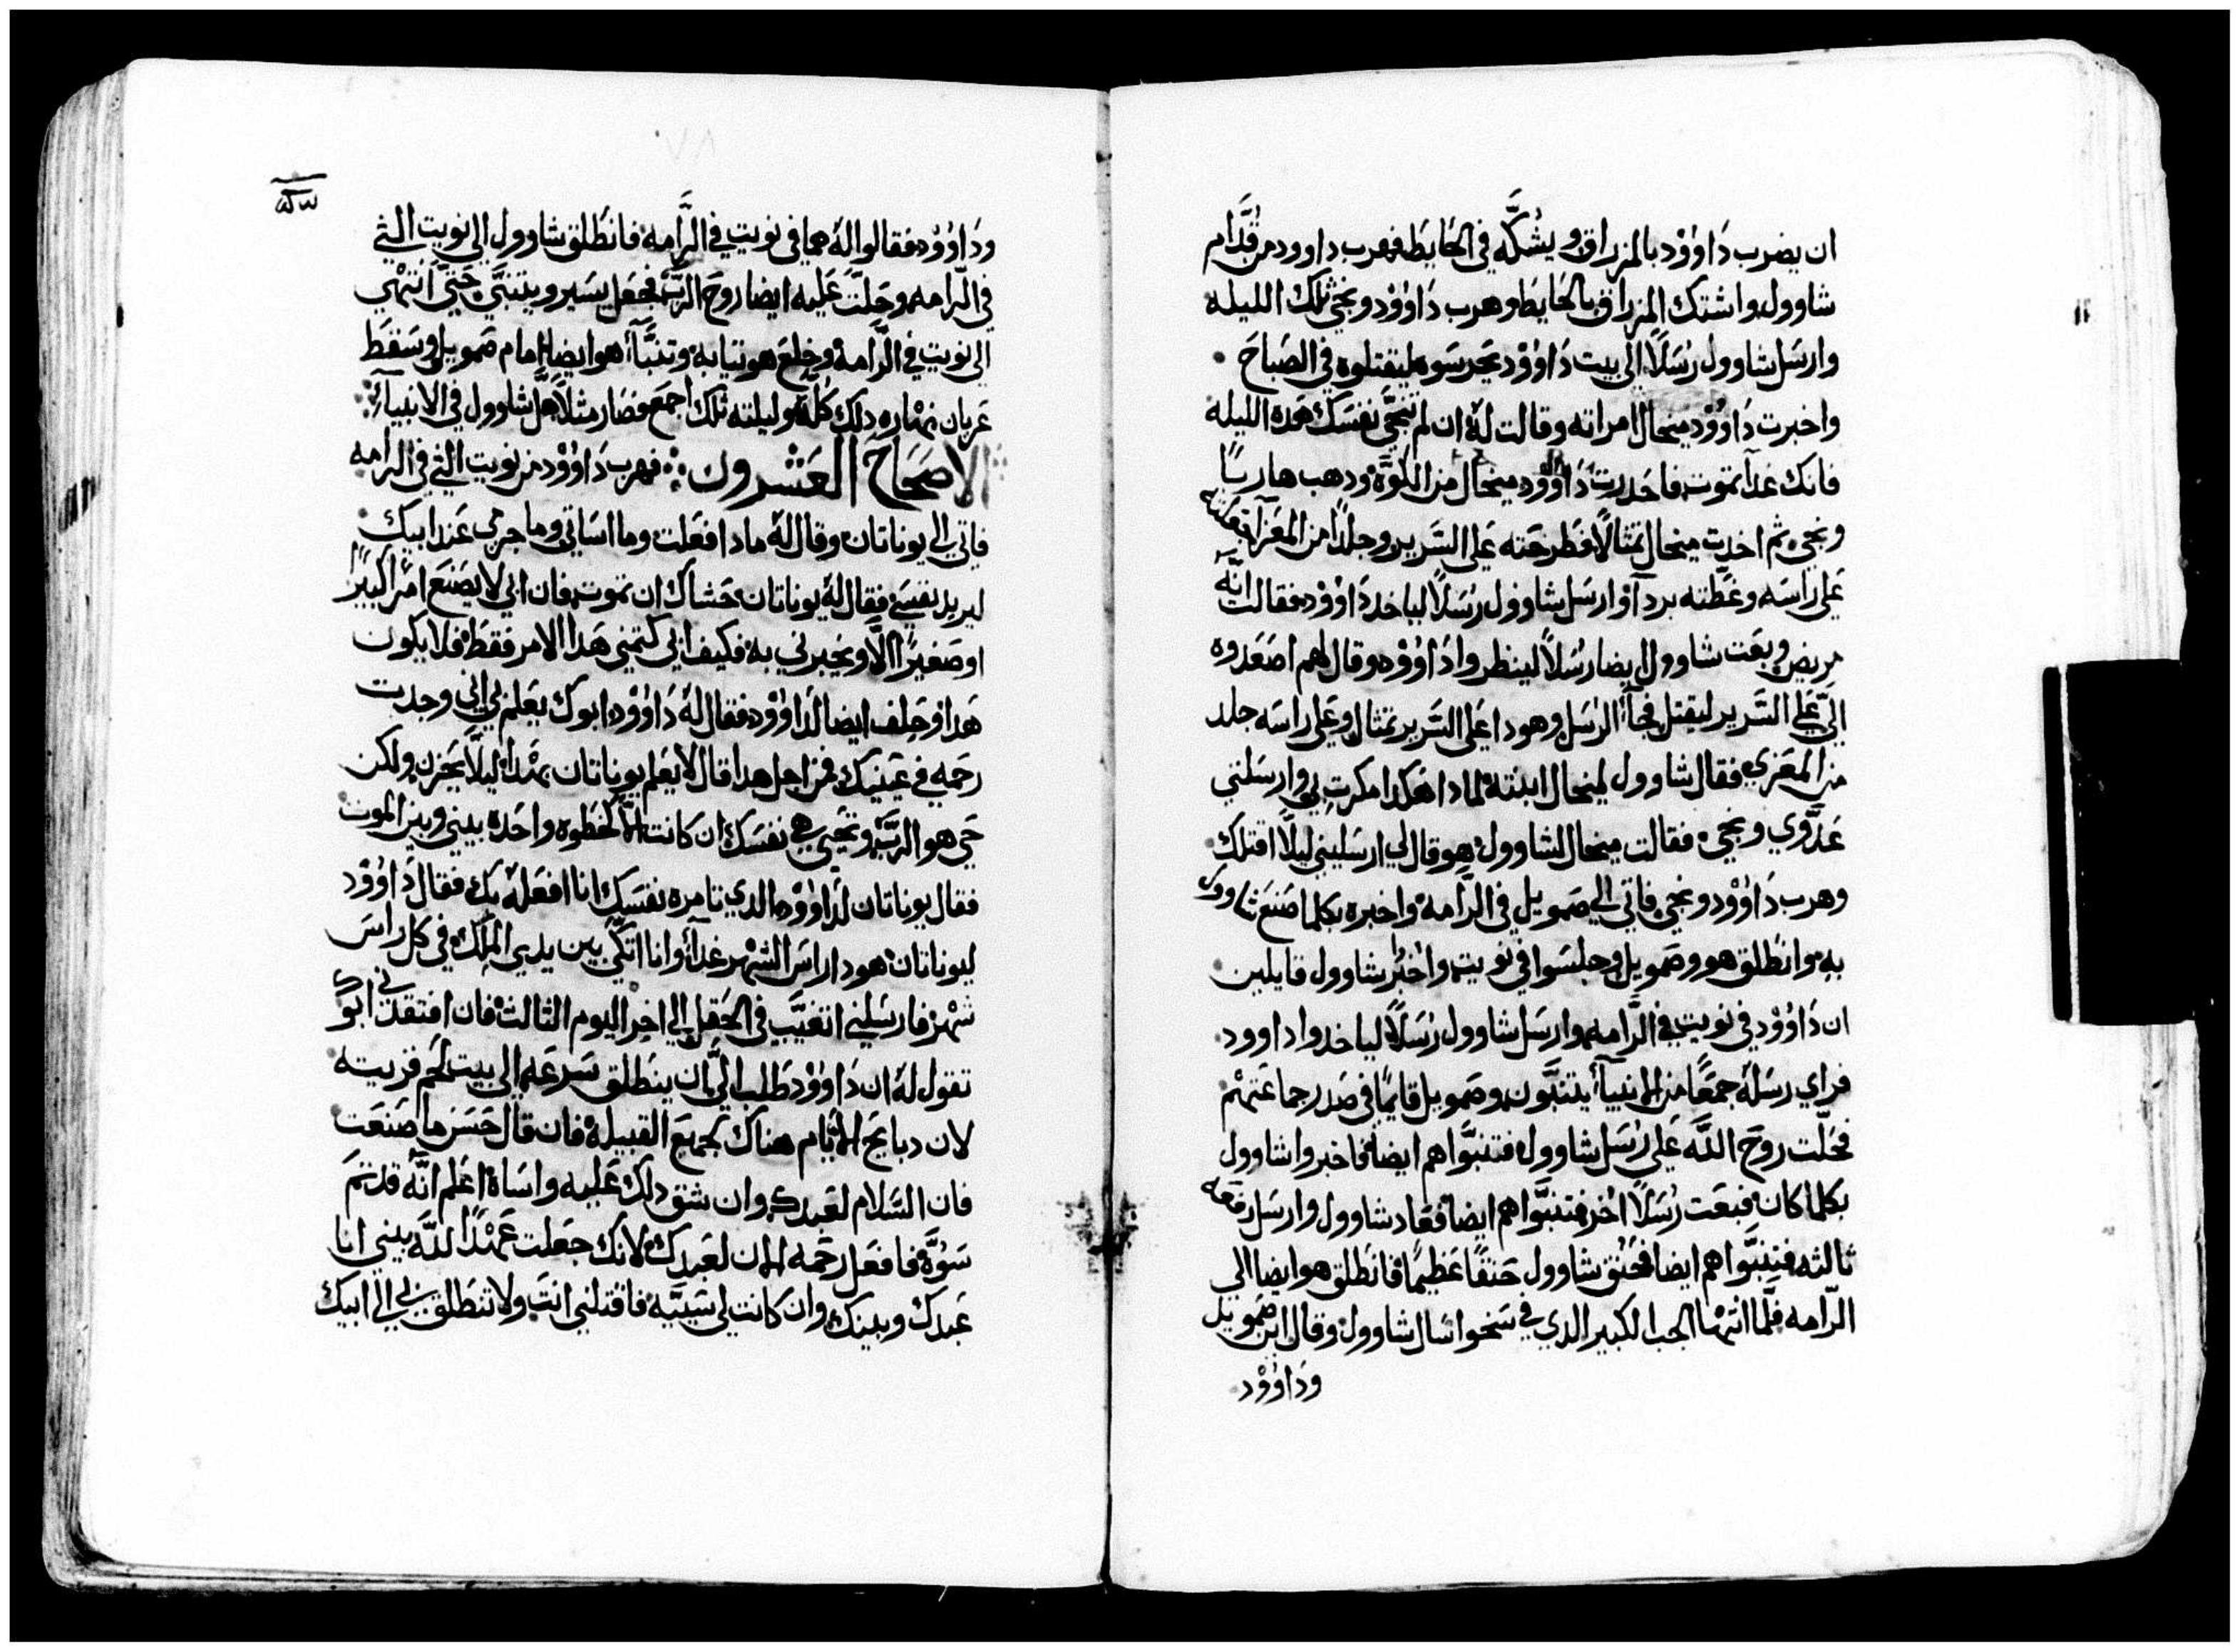 ان يضرب دَاوُوْد بالمزراق ويشكَّه في الحَايط فهرب داوود من قُدَّام
شاوول واشتك المزراق بالحَايط وهرب دَاوُوْد ونجي تلك الليله
وارسَل شاوول رسَلاً الي بيت دَاوُوْد تحَرسَوه ليقتلوه في الصَباحَ
واخبرت دَاوُوْد ميخال امراته وقالت لهُ ان لم تنجّي نفسَك هَده الليله
فانك غداً تموت فاحَدرت دَاوُوْد ميخال من الكوَّة ودهب هاربًا
ونجي ثم اخدت ميخال تمثالاً فطرحَته عَلي السَرير وجلدًا من المعَزا فعَلته
عَلي راسَه وغطَّته بردآ وارسَل شاوول رسَلاً لياخد دَاوُوْد فقالت انّهُ
مريض وبعَت شاوول ايضا رسُلاً لينظروا دَاوُوْد وقال لهم اصَعَدوه
اليّ عَلي السَرير ليقتل فجآ الرسَل وهودا عَلي السَرير تمثال وعَلي راسَه جلد
من المعَزي فقال شاوول لميخال ابنته لمادا هَكدا مكرتِ بي وارسَلتي
عَدَّوي ونجي فقالت ميخال لشاوول هو قال لي ارسَليني ليلاَّ اقتلك
وهرب دَاوُوْد ونجي فاتي الي صَمويل في الرَّامة واخبره بكلما صَنعَ شاوول
به وانطلق هو وصَمويل وجلسَوا في نويت واخبرُ شاوول قايلين
ان دَاوُوْد في نويت في الرَّامه وارسَل شاوول رسَلاً لياخدوا داوود
فراي رسَلهُ جمعًا من الانبيآ يتنبَّون وصَمويل قايمًا في صَدر جماعَتهْم
فحَلّت روحَ اللّه عَلي رسَل شاوول فتنبَّوا هم ايضا فاخبروا شاوول
بكلما كان فبعَت رسَلاً اخر فتنبَّوا هم ايضا فعَاد شاوول وارسَل دفعَه
ثالثه فتنبَّوا هم ايضا فحَنق شاوول حَنقًا عَظيمًا فانطلق هو ايضا الي
الرّامه فلَّما انتهْا الجب الكبير الدي في سَخوا سَال شاوول وقال اين صَمويل
ودَاوُوْد
ودَاوُوْد فقالوا لهُ هما في نويت في الرَّامه فانطلق شاوول الي نويت التي
في الرّامه وحَلّت عَليه ايضا روحَ الربّ فجعَل يسَير ويتنبَّي حَتيّ انتهْي
الي نويت في الرَّامة وخلعَ هو تيابه وتنبَّا هو ايضا امام صَمويل وسَقط
عَريان نهْاره دلك كُلَّهُ وليلته تلك اجمعَ فصَار مثلاً هَل شاوول في الانبيآءِ
الاصَحَاحَ العَشرون فهرب دَاوُوْد من نويت التي في الرامه
فاتي الي يوناتان وقال لهُ مادا فعَلت وما اسَاتي وما جرمي عَند ابيك
ليريد نفسَي فقال لهُ يوناتان حَشاك ان تموت فان ابي لا يصَنعَ امرًا كبيرًا
او صَغيرًا الاَّ ويخبرني به فكيف ابي كتمني هَدا الامر فقط فلا يكون
هَدا وحَلف ايضا لدَاوُوْد فقال لهُ دَاوُوْد ابوك يعَلم اني وجدت
رحَمه في عَينيك فمن اجل هدا قال لا يعَلم يوناتان بهْدا ليلاَّ يحَزن ولكن
حَي هو الربّ وتحَيي هي نفسَك ان كانت الاَّ خطوه واحَده بيني وبين الموت
فقال يوناتان لدَاوُوْد الدي تامره نفسَك انا افعَلهُ بك فقال دَاوُوْد
ليوناتان هودا راسَ الشهْر غداً وانا اتكّي بين يدي الملك في كل راسَ
شهْر فارسَلني اتغيَّب في الحَقل الي اخر اليوم الثالث فان افتقدني ابوك
تقول لهُ ان دَاوُوْد طلب اليَّ ان ينطلق سَرعَه الي بيت لحَم قريته
لان دبايحَ الايام هناك لجميعَ القبيله فان قال حَسَن ما صَنعَت
فان السَلام لعَبدك وان شق دلك عَليه واسَاه اعَلم انّه قد تمَ
سَوَّه فافعَل رحَمه الان لعَبدك لانك جعَلت عَهْد اللّه بيني انا
عَبدك وبينك وان كانت لي سَيَّيه فاقتلني انتَ ولا تنطلق بي الي ابيك